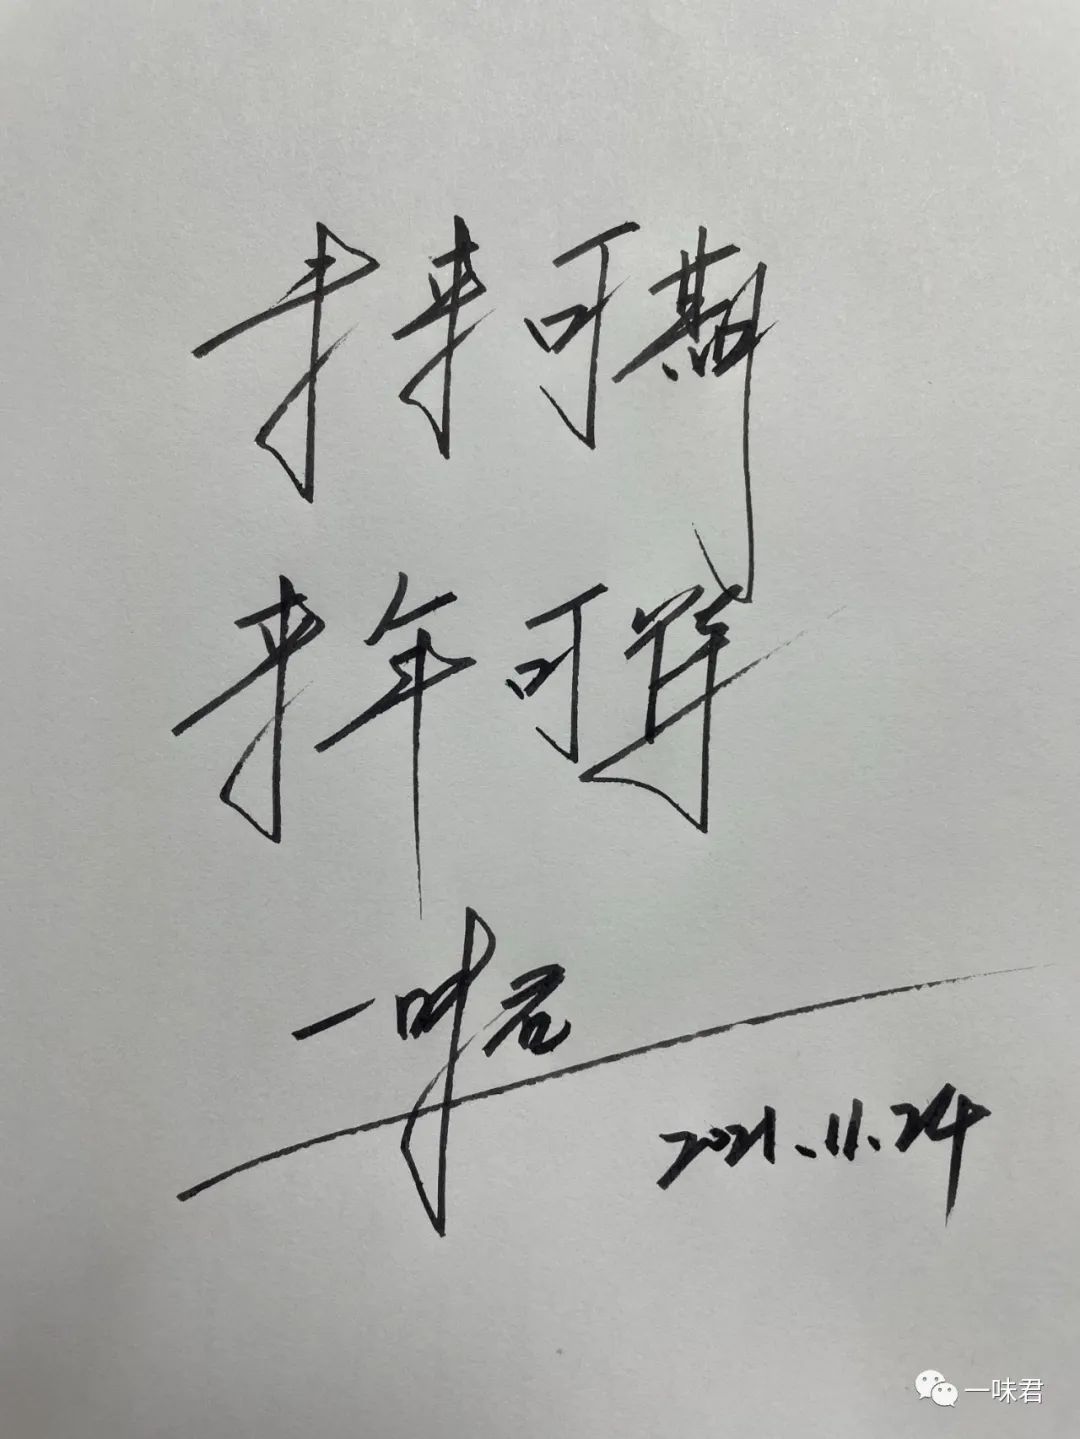 未来可期
来年可
一味君
2021.11.24
一味君